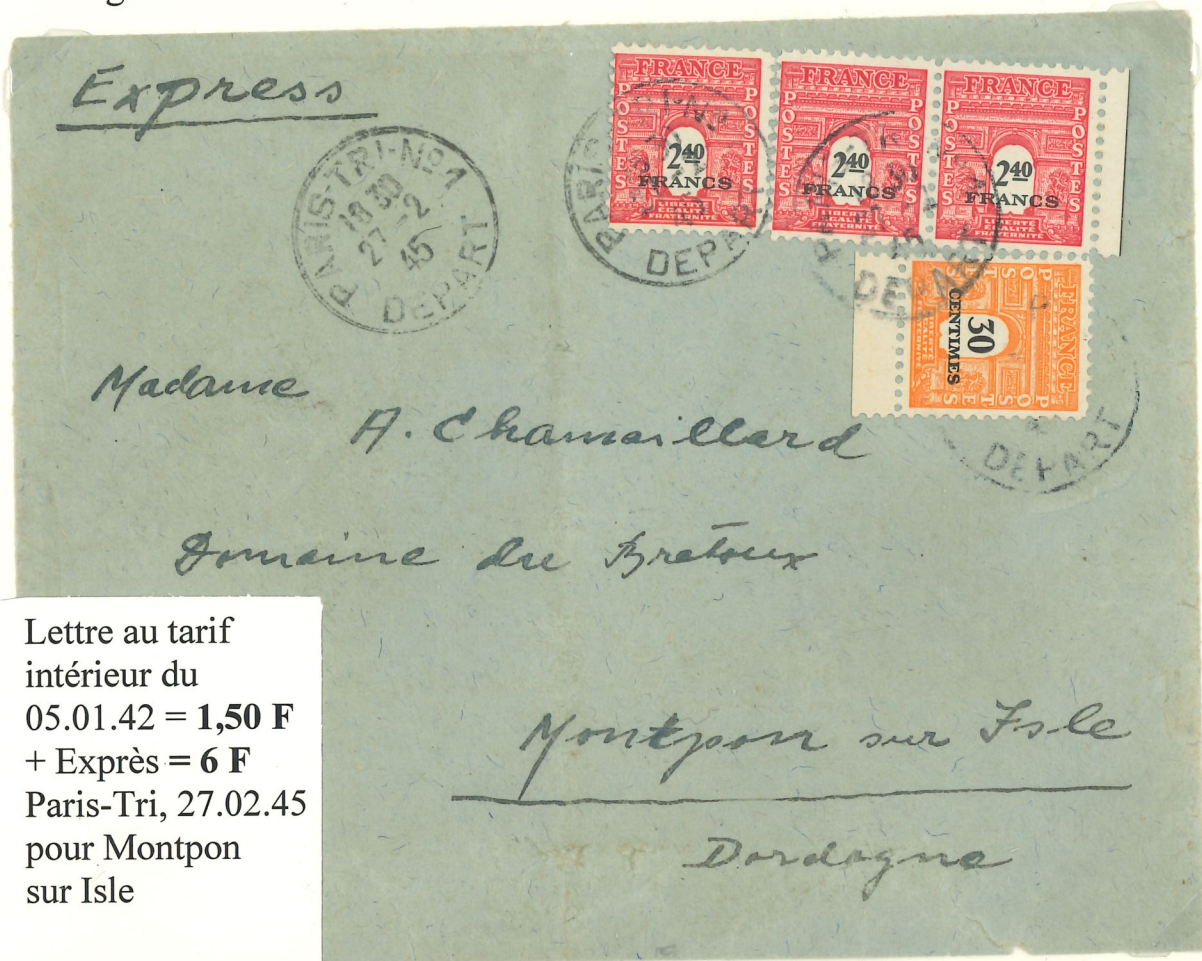 Express
PARIS-TRI-Nº1
18 30
27-2
45
DEPART
FRANCE
POSTES
2 40
FRANCS
LIBERTÉ
ÉGALITÉ
FRATERNITÉ
FRANCE
POSTES
2 40
FRANCS
LIBERTÉ
ÉGALITÉ
FRATERNITÉ
FRANCE
POSTES
2 40
FRANCS
LIBERTÉ
ÉGALITÉ
FRATERNITÉ
DEPART
FRANCE
POSTES
30
CENTIMES
LIBERTÉ
ÉGALITÉ
FRATERNITÉ
DEPART
Madame
A. Chamaillard
Domaine du Bretoux
Montpon sur Isle
Dordogne
Lettre au tarif
intérieur du
05.01.42 = 1,50 F
+ Exprès = 6 F
Paris-Tri, 27.02.45
pour Montpon
sur Isle